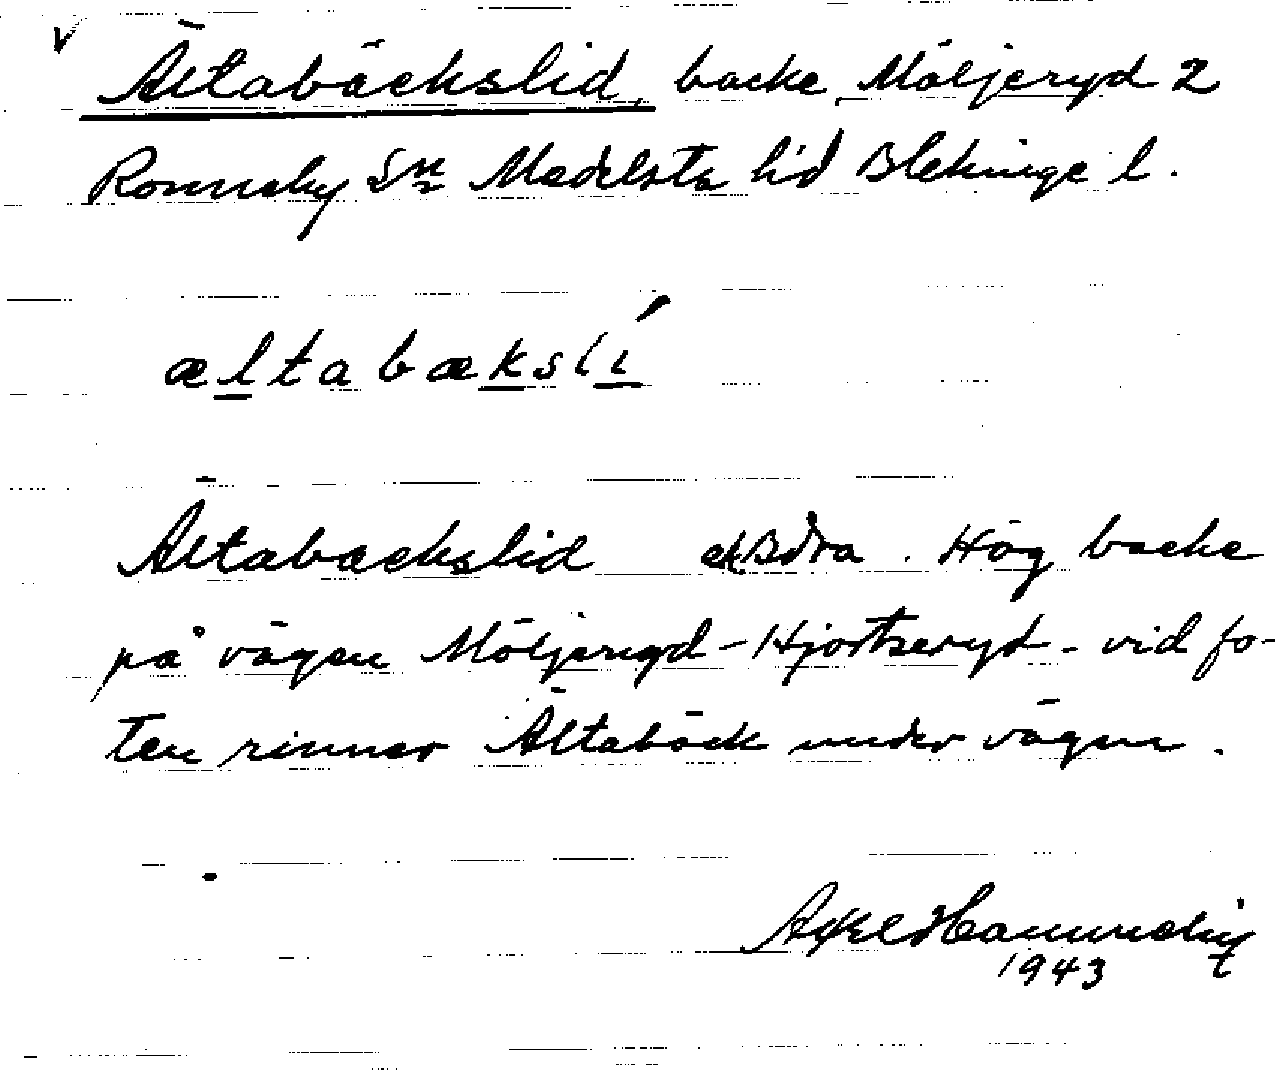 Ältabäckslid, backe, Möljeryd 2
Ronneby Sn Medelsta hd Blekinge l.
æltabækslí
Ältabäckslid Södra. Hög backe
på vägen Möljeryd-Hjortseryd - vid fo-
ten rinner Ältabäck under vägen.
Axel Hammeby
1943